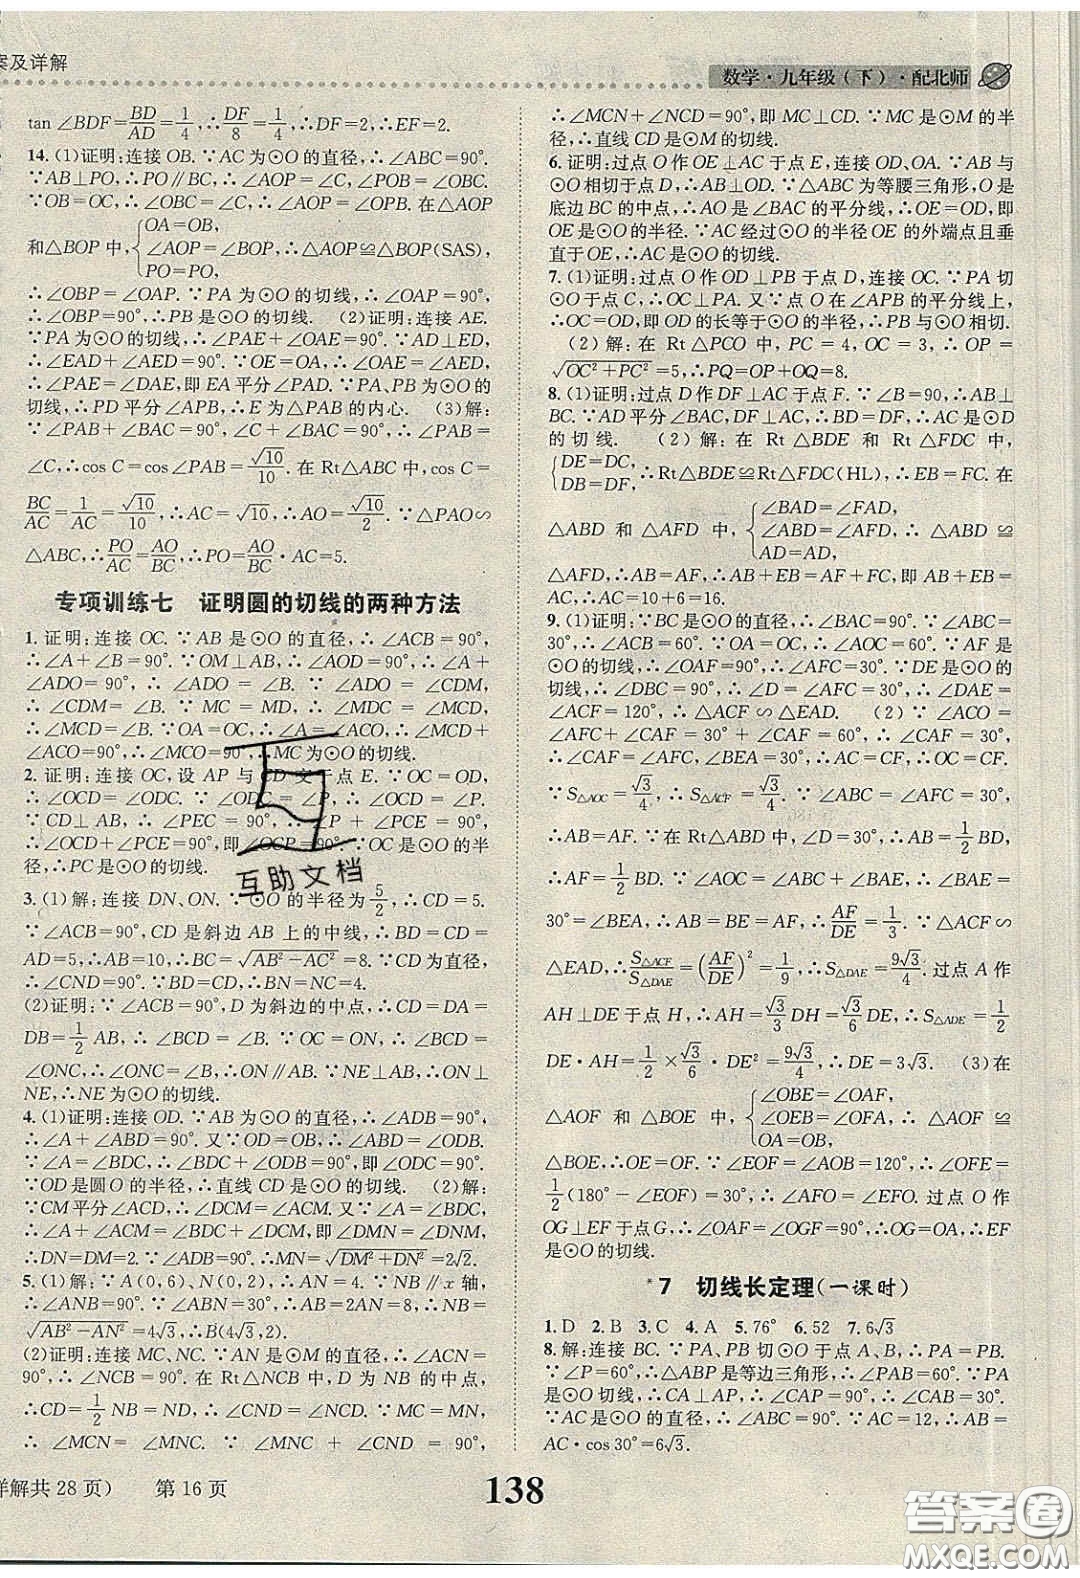 案及详解
数学·九年级(下)·配北师
tan∠BDF=BD/AD=1/4,∴DF/8=1/4,∴DF=2,∴EF=2.
14.(1)证明:连接OB.∵AC为⊙O的直径,∴∠ABC=90°.
∵AB⊥PO,∴PO∥BC,∴∠AOP=∠C,∠POB=∠OBC.
∵OB=OC,∴∠OBC=∠C,∴∠AOP=∠OPB.在△AOP
和△BOP中,{OA=OB, ∠AOP=∠BOP, PO=PO, ∴△AOP≌△BOP(SAS),
∴∠OBP=∠OAP.∵PA为⊙O的切线,∴∠OAP=90°,
∴∠OBP=90°,∴PB是⊙O的切线. (2)证明:连接AE.
∵PA为⊙O的切线,∴∠PAE+∠OAE=90°.∵AD⊥ED,
∴∠EAD+∠AED=90°.∵OE=OA,∴∠OAE=∠AED,
∴∠PAE=∠DAE,即EA平分∠PAD.∵PA、PB为⊙O的
切线,∴PD平分∠APB,∴E为△PAB的内心. (3)解:
∵∠PAB+∠BAC=90°,∠C+∠BAC=90°,∴∠PAB=
∠C,∴cos C=cos∠PAB=√10/10.在Rt△ABC中,cos C=
BC/AC=1/AC=√10/10,∴AC=√10,∴AO=√10/2.∵△PAO∽
△ABC,∴PO/AC=AO/BC,∴PO=AO/BC·AC=5.
专项训练七 证明圆的切线的两种方法
1.证明:连接OC.∵AB是⊙O的直径,∴∠ACB=90°,
∴∠A+∠B=90°.∵OM⊥AB,∴∠AOD=90°,∴∠A+
∠ADO=90°,∴∠ADO=∠B.∵∠ADO=∠CDM,
∴∠CDM=∠B.∵MC=MD,∴∠MDC=∠MCD,
∴∠MCD=∠B.∵OA=OC,∴∠A=∠ACO,∴∠MCD+
∠ACO=90°,∴∠MCO=90°,∴MC为⊙O的切线.
2.证明:连接OC,设AP与CD交于点E.∵OC=OD,
∴∠OCD=∠ODC.∵∠ODC=∠P,∴∠OCD=∠P.
∵CD⊥AB,∴∠PEC=90°,∴∠P+∠PCE=90°,
∴∠OCD+∠PCE=90°,即∠OCP=90°.∵OC是⊙O的半
径,∴PC是⊙O的切线.
3.(1)解:连接DN、ON.∵⊙O的半径为5/2,∴CD=5.
∵∠ACB=90°,CD是斜边AB上的中线,∴BD=CD=
AD=5,∴AB=10,∴BC=√(AB²-AC²)=8.∵CD为直径,
∴∠CND=90°.∵BD=CD,∴BN=NC=4.
(2)证明:∵∠ACB=90°,D为斜边的中点,∴CD=DA=
DB=1/2AB,∴∠BCD=∠B.∵OC=ON,∴∠BCD=
∠ONC,∴∠ONC=∠B,∴ON∥AB.∵NE⊥AB,∴ON⊥
NE,∴NE为⊙O的切线.
4.(1)证明:连接OD.∵AB为⊙O的直径,∴∠ADB=90°,
∴∠A+∠ABD=90°.又∵OD=OB,∴∠ABD=∠ODB.
∵∠A=∠BDC,∴∠BDC+∠ODB=90°,即∠ODC=90°.
∵OD是圆O的半径,∴直线CD是⊙O的切线. (2)解:
∵CM平分∠ACD,∴∠DCM=∠ACM.又∵∠A=∠BDC,
∴∠A+∠ACM=∠BDC+∠DCM,即∠DMN=∠DNM,
∴DN=DM=2.∵∠ADB=90°.∴MN=√(DM²+DN²)=2√2.
5.(1)解:∵A(0,6)、N(0,2),∴AN=4.∵NB∥x轴,
∴∠ANB=90°.∵∠ABN=30°,∴AB=2AN=8,∴NB=
√(AB²-AN²)=4√3,∴B(4√3,2).
(2)证明:连接MC、NC.∵AN是⊙M的直径,∴∠ACN=
90°,∴∠NCB=90°.在Rt△NCB中,D为NB的中点,
∴CD=1/2NB=ND,∴∠CND=∠NCD.∵MC=MN,
∴∠MCN=∠MNC.∵∠MNC+∠CND=90°,
∴∠MCN+∠NCD=90°,即MC⊥CD.∵MC是⊙M的半
径,∴直线CD是⊙M的切线.
6.证明:过点O作OE⊥AC于点E,连接OD、OA.∵AB与
⊙O相切于点D,∴AB⊥OD.∵△ABC为等腰三角形,O是
底边BC的中点,∴AO是∠BAC的平分线,∴OE=OD,即
OE是⊙O的半径.∵AC经过⊙O的半径OE的外端点且垂
直于OE,∴AC是⊙O的切线.
7.(1)证明:过点O作OD⊥PB于点D,连接OC.∵PA切
⊙O于点C,∴OC⊥PA.又∵点O在∠APB的平分线上,
∴OC=OD,即OD的长等于⊙O的半径,∴PB与⊙O相切.
(2)解:在Rt△PCO中,PC=4,OC=3,∴OP=
√(OC²+PC²)=5,∴PQ=OP+OQ=8.
8.(1)证明:过点D作DF⊥AC于点F.∵∠B=90°,∴AB⊥
BC.∵AD平分∠BAC,DF⊥AC,∴BD=DF,∴AC是⊙D
的切线. (2)解:在Rt△BDE和Rt△FDC中,
{DE=DC, DB=DF,∴Rt△BDE≌Rt△FDC(HL),∴EB=FC.在
△ABD和△AFD中,{∠BAD=∠FAD, ∠ABD=∠AFD, AD=AD,∴△ABD≌
△AFD,∴AB=AF,∴AB+EB=AF+FC,即AB+EB=
AC,∴AC=10+6=16.
9.(1)证明:∵BC是⊙O的直径,∴∠BAC=90°.∵∠ABC=
30°,∴∠ACB=60°.∵OA=OC,∴∠AOC=60°.∵AF是
⊙O的切线,∴∠OAF=90°,∴∠AFC=30°.∵DE是⊙O的
切线,∴∠DBC=90°,∴∠D=∠AFC=30°,∴∠DAE=
∠ACF=120°,∴△ACF∽△EAD. (2)∵∠ACO=
∠AFC+∠CAF=30°+∠CAF=60°,∴∠CAF=30°,
∴∠CAF=∠AFC,∴AC=CF,∴OC=CF.
∵S△AOC=√3/4,∴S△ACF=√3/4.∵∠ABC=∠AFC=30°,
∴AB=AF.在Rt△ABD中,∠D=30°,∴AB=1/2BD,
∴AF=1/2BD.∵∠AOC=∠BAE,∴∠BAE=
30°=∠BEA,∴AB=BE=AF,∴AF/DE=1/3.∵△ACF∽
△EAD,∴S△ACF/S△DAE=(AF/DE)²=1/9,∴S△DAE=9√3/4.过点A作
AH⊥DE于点H,∴AH=√3/3DH=√3/6DE,∴S△ADE=1/2
DE·AH=1/2×√3/6·DE²=9√3/4,∴DE=3√3. (3)在
△AOF和△BOE中,{∠OBE=∠OAF, ∠OEB=∠OFA, OA=OB,∴△AOF≌
△BOE,∴OE=OF.∵∠EOF=∠AOB=120°,∴∠OFE=
1/2(180°-∠EOF)=30°,∴∠AFO=∠EFO.过点O作
OG⊥EF于点G,∴∠OAF=∠OGF=90°,∴OG=OA,∴EF
是⊙O的切线.
*7 切线长定理(一课时)
1.D 2.B 3.C 4.A 5.76° 6.52 7.6√3
8.解:连接BC.∵PA、PB切⊙O于点A、B,∴PA=PB.
∵∠P=60°,∴△ABP是等边三角形,∴∠BAP=60°.∵PA
是⊙O切线,∴CA⊥AP,∴∠CAP=90°,∴∠CAB=30°.
∵AC是⊙O的直径,∴∠ABC=90°.∵AC=12,∴AB=
AC·cos30°=6√3.
互助文档
详解共28页) 第16页
138
答案圈
MXQE.COM